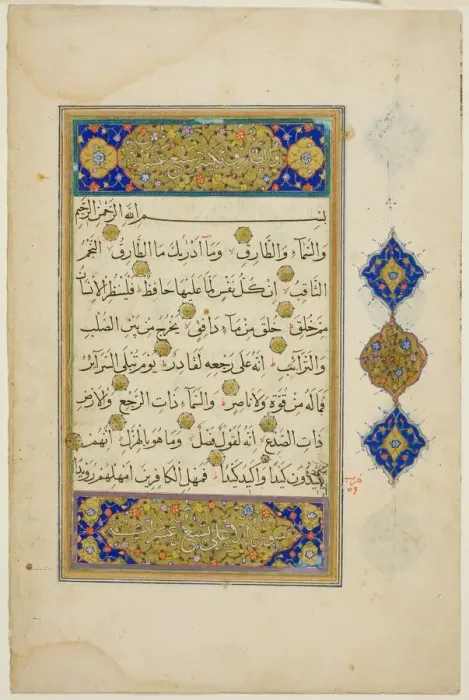 بسم الله الرحمن الرحيم
والسماء والطارق وما أدريك ما الطارق النجم
الثاقب ان كل نفس لما عليها حافظ فلينظر الإنسان
مم خلق خلق من ماء دافق يخرج من بين الصلب
والترائب انه على رجعه لقادر يوم تبلى السرائر
فما له من قوة ولا ناصر والسماء ذات الرجع والأرض
ذات الصدع انه لقول فصل وما هو بالهزل انهم
يكيدون كيدا وأكيد كيدا فمهل الكافرين أمهلهم رويدا
حزب
سورة الاعلى تسع عشر